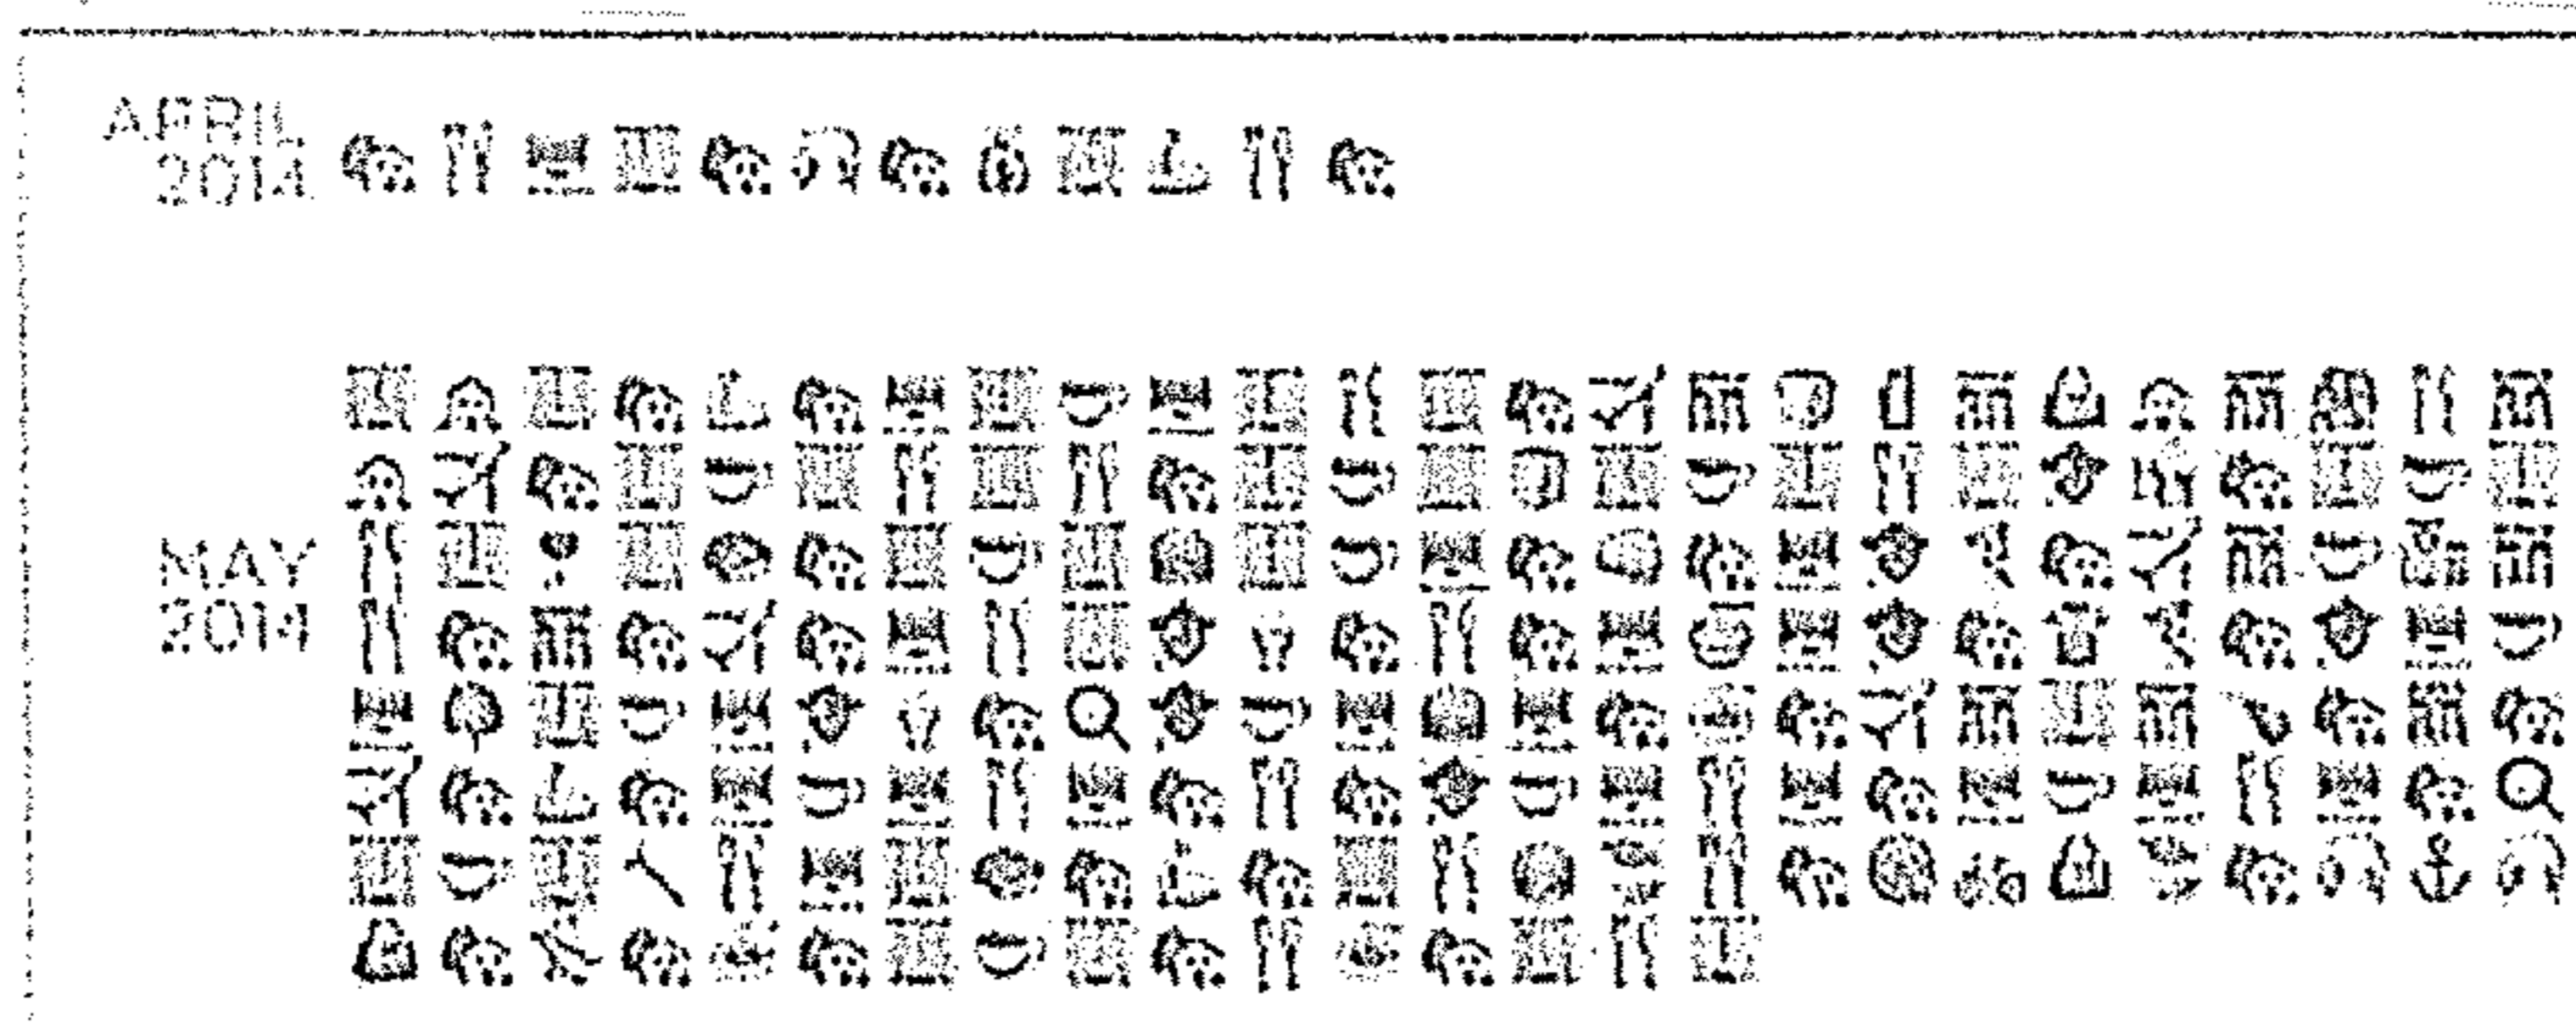 APRIL
2014
MAY
2014